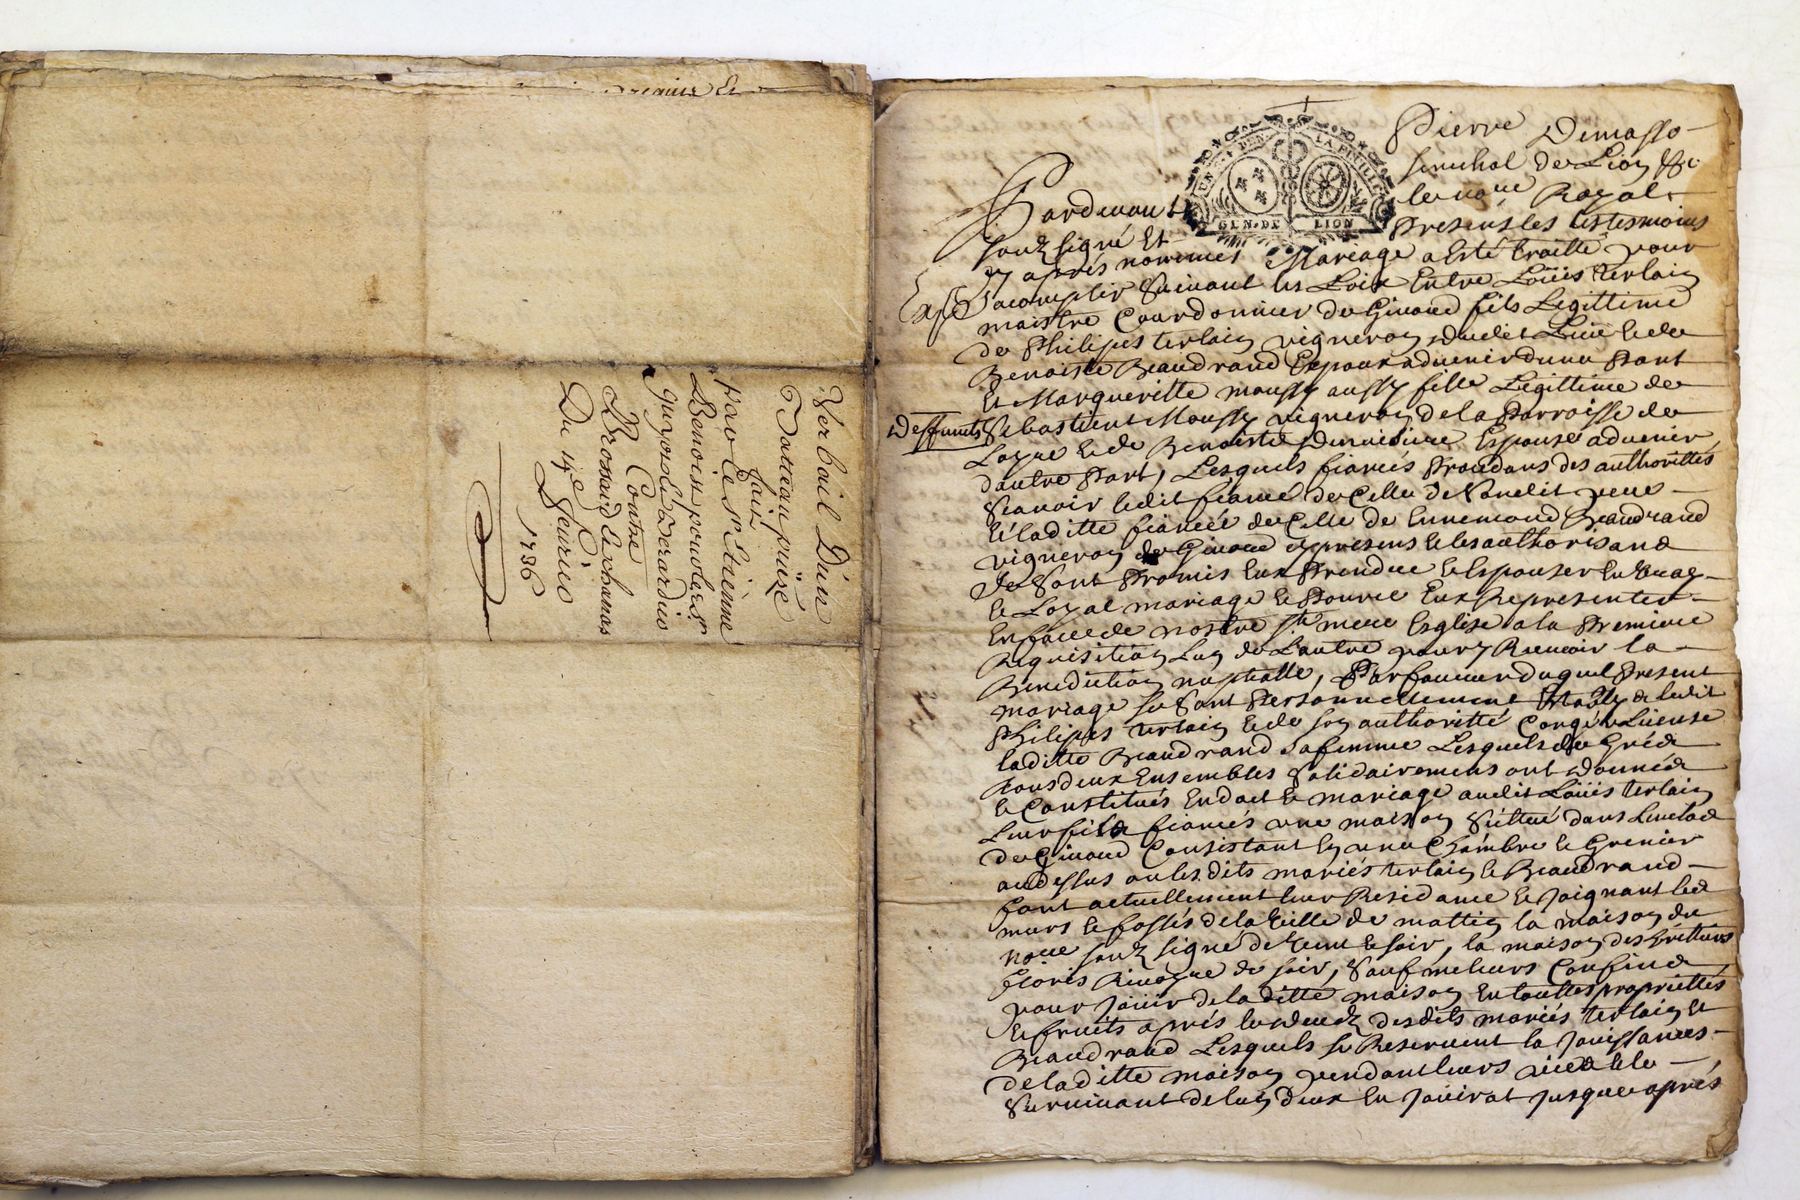 Verbail D'un
Tatteau püizé
fait
Par Ce St Etienne
Benoist
Contre
Brossard Lechamas
Du 19e Feurier
1736
Pierre Demasso
senechal de Lion &c
le no.re Royal
Pardeuant
UN S. 4 DEN. LA PHILIP
GEN. DE LION
souz signé Et
Presens les testmoins
y aprés nommés Mariage a Esté traitté pour
acomplir Suiuant les Loix Entre Loüis terlain
Exp.é
maistre Courdonnier de Giuord fils Legittime
de Philipes terlain vigneron dudit Lieu & de
Benoiste Beaudrand Espoux aduenir dune Part
Et Margueritte Moussy aussy fille Legittime de
Deffunts
Sebastient Moussy vigneron de la Parroisse de
Loyre & de Benoiste Espouse aduenir
dautre Part, Lesquels fiancés Procedans des authorittés
Scauoir ledit fiancé de Celle de Sondit pere
& laditte fiancée de Celle de Ennemond Beaudrand
vigneron de Giuord yci presens & les authorisand
Se Sont Promis Eux Prendre & Espouser En vray
& Loyal mariage & Pource Eux Representer
En face de nostre Ste mere Esglise a la Premiere
Requisition Lun de Lautre pour y Receuoir la
Benediction nuptialle, Par faueur duquel Present
mariage se Sont Personnellement Establys ledit
Philipes terlain & de son authoritté Congé & License
laditte Beaudrand sa femme Lesquels de Gré &
tous deux Ensembles Solidairement ont Donnés
& Constitués En dot & mariage audit Loüis terlain
Leur fils fiancés une maison Scittué dans
de Giuord Consistant En une Chambre & Grenier
au dessus ou les dits mariés terlain & Beaudrand
font actuellement leur Residance & Joignant les
murs & fossés de la Ville de mattin la maison du
no.re souz signé de vent & soir, la maison des hérittiers
de soir, Sauf melieurs Confins
pour Joüir de la ditte maison En touttes propriettés
& fruits aprés le Decedz desdits mariés terlain &
Beaudrand Lesquels se Reseruent la Joüissances
de laditte maison pendant leurs vies & le
Suruiuant de Lun deux En Joüirat Jusques aprés